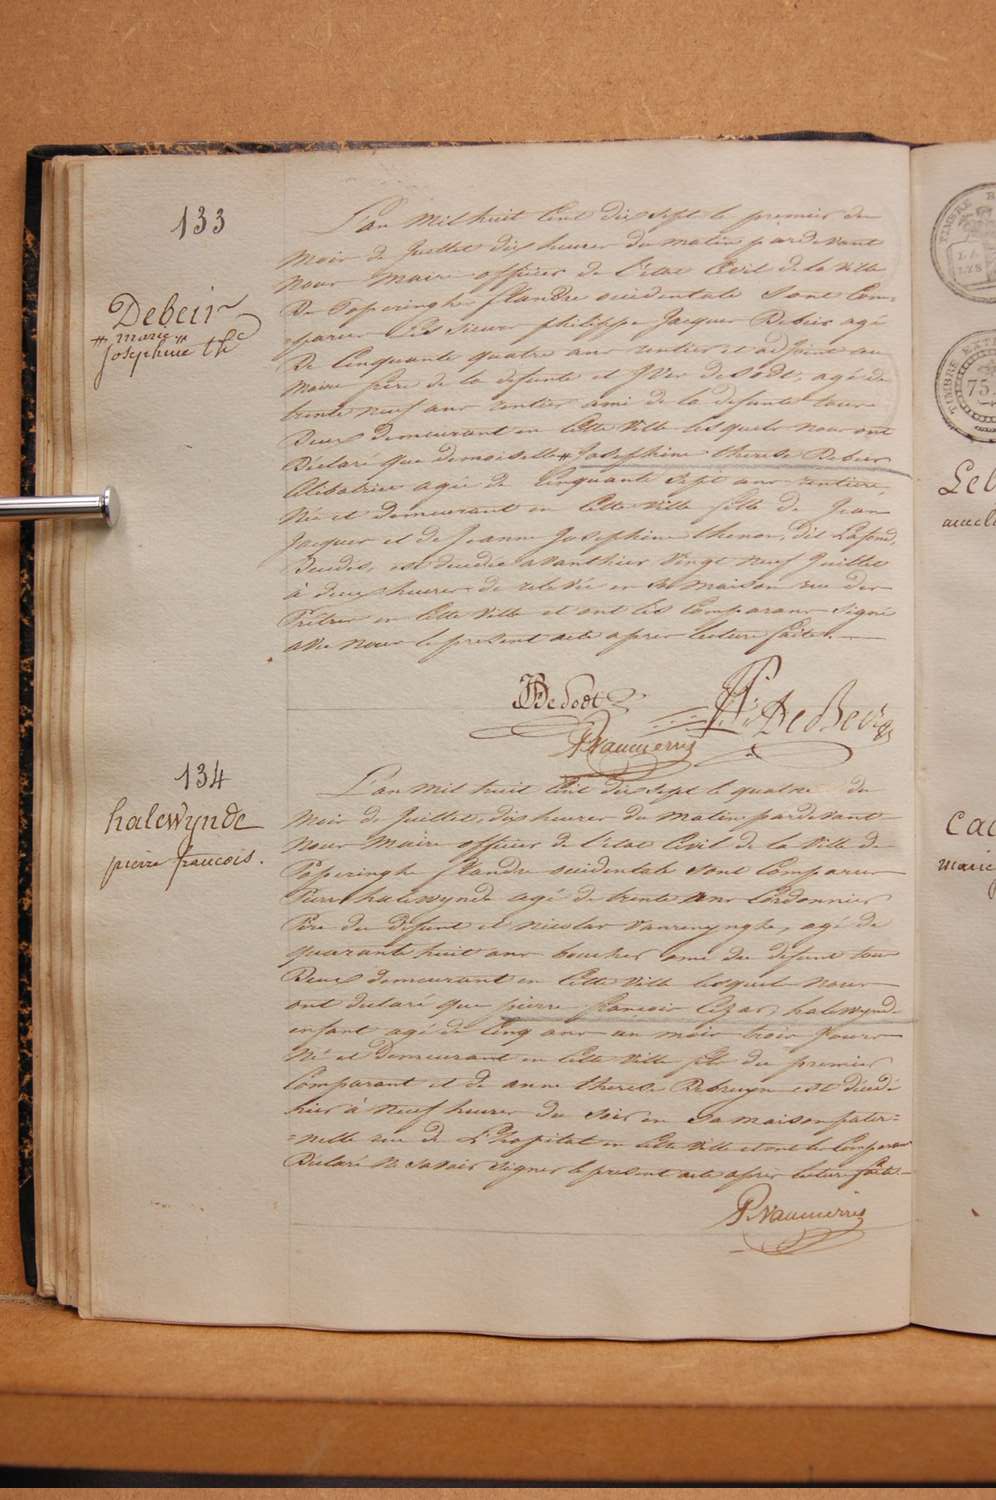 133
Debeir
# marie #
Josephine th.e
L'an Mil huit Cent dix sept le premier du
mois de Juillet dix heures du matin pardevant
Nous Maire officier de l'état Civil de la Ville
De Poperinghe flandre occidentale sont Com-
parus Les Sieurs philippe Jacques Debeir agé
De Cinquante quatre ans rentier et adjoint au
maire frère de la defunte et Yves de Sodt, agé de
trente neuf ans rentier ami de la defunte tous
Deux demeurant en Cette Ville lesquels nous ont
Déclaré que demoiselle # Josephine therese Debeir
Celibatrice agée de Cinquante sept ans rentiere,
Née et demeurant en Cette Ville fille de Jean
Jacques et de Jeanne Josephine thenon, dit Lafond,
Decedés, est decedée avanthier vingt neuf Juillet
à deux heures de relevée en sa maison rue des
Prêtres en Cette Ville et ont les Comparans signé
avec nous le present acte apres lecture faite.
De Sodt
P. J. De Beir
P. Vanmerris
134
halewynde
pierre françois.
L'an Mil huit Cent dix sept le quatre du
Mois de Juillet, dix heures du matin pardevant
Nous Maire officier de l'état Civil de la Ville de
Poperinghe flandre occidentale sont Comparus
Pierre halewynde agé de trente ans Cordonnier
Père du defunt et Nicolas Vanrenynghe, agé de
quarante huit ans boucher ami du defunt tous
Deux demeurant en Cette Ville lesquels nous
ont declaré que pierre françois Cezar halewynde
enfant agé de Cinq ans un mois trois Jours
Né et Demeurant en Cette Ville fils du premier
Comparant et de anne therese Debruyne est décédé
hier à neuf heures du soir en sa maison pater=
=nelle rue de L'hopital en Cette Ville et ont les Comparans
Declaré Ne savoir signer le present acte apres lecture faite.
P. Vanmerris
TIMBRE
TIMBRE
75
Leb